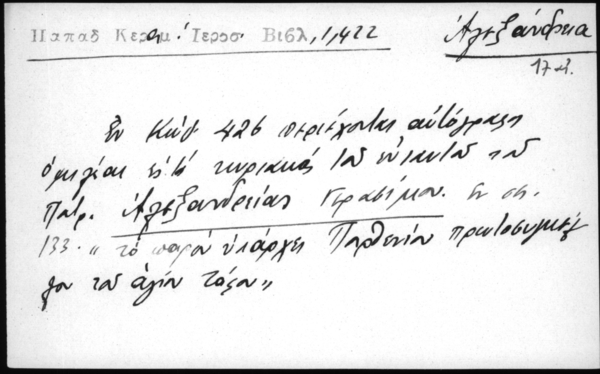 Παπαδ Κεραμ. Ιεροσ. Βιβλ, 1,422
Ἀλεξάνδρεια
17 αἰ.
Ἐν Κώδ 426 περιέχονται αὐτόγραφοι
ὁμιλίαι εἰς τὰς κυριακὰς τοῦ ἐνιαυτοῦ τοῦ
Πατρ. Ἀλεξανδρείας Γερασίμου. Ἐν σελ.
133. „ τὸ παρὸν ὑπάρχει Παρθενίου πρωτοσυγκέλ
λου τοῦ ἁγίου Τάφου„